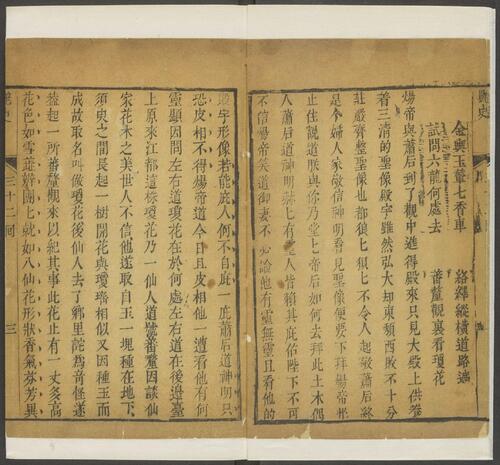 艷史
金輿玉輦七香車　絡繹縱橫道路遙
試問六龍何處去　蕃釐觀裏看瓊花
煬帝與蕭后到了觀中進得殿來只見大殿上供養
着三清的聖像殿宇雖然弘大却東頹西敗不十分
莊嚴齊整聖像也都狼狽不令人起敬蕭后終
是个婦人家敬信神明看見聖像便要下拜煬帝忙
止住說道朕與你乃堂上帝后如何去拜此土木偶
人蕭后道神明赫有人皆賴其庇佑陛下不可
不信煬帝笑道御妻不必論他有靈無靈且看他的
殿宇形像若能庇人何不自庇一庇蕭后道神明只
恐皮相不得煬帝道今日且皮相他一遭看他有何
靈顯因問左右道瓊花在於何處左右道在後邊臺
上原來江都這株瓊花乃一仙人道號蕃釐因談仙
家花木之美世人不信他遂取白玉一塊種在地下
須臾之間長起一樹開花與瓊瑤相似又因種玉而
成故取名叫做瓊花後仙人去了鄉里詫為奇怪遂
蓋起一所蕃釐觀來以紀其事此花止有一丈多高
花色如雪蕊瓣團上就如八仙花形狀香氣芬芳異
艷史
三十二回
三